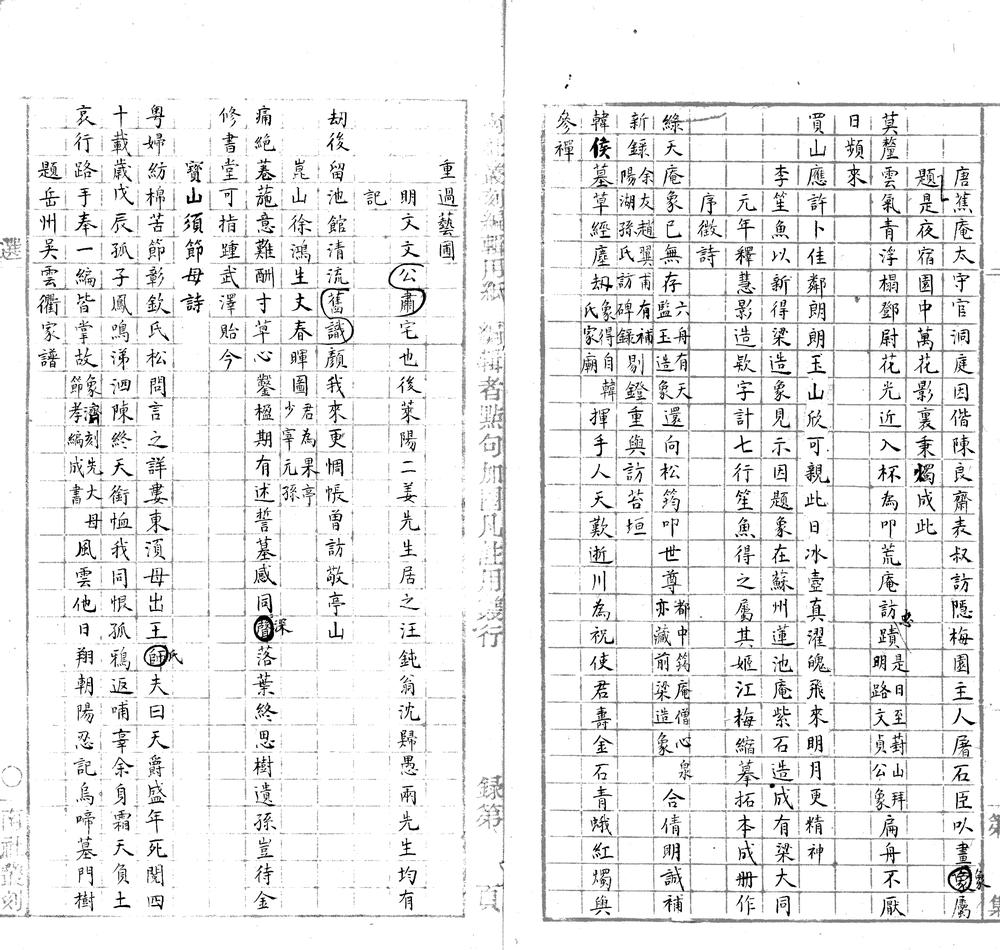 唐蕉庵太守官洞庭因偕陳良齋表叔訪隱梅園主人屠石臣以畫象屬
題是夜宿園中萬花影裏秉燭成此
莫釐雲氣青浮榻鄧尉花光近入杯為叩荒庵訪忠蹟是日至葑山拜明路文貞公象扁舟不厭
日頻來
買山應許卜佳鄰朗朗玉山欣可親此日冰壺真濯魄飛來明月更精神
李笙魚以新得梁造象見示因題象在蘇州蓮池庵紫石造成有梁大同
元年釋慧影造欵字計七行笙魚得之屬其姬江梅縮摹拓本成册作
序徵詩
綠天庵象已無存六舟有天監玉造象還向松筠叩世尊都中筠庵僧心泉亦藏前梁造象合倩明誠補
新錄余友趙翼甫有補陽湖孫氏訪碑錄剔鐙重與訪苔垣
韓侯墓草經塵刼象得自韓氏家廟揮手人天歎逝川為祝使君壽金石青蛾紅燭與
參禪
重過藝圃
明文文肅公宅也後萊陽二姜先生居之汪鈍翁沈歸愚兩先生均有
記
刼後留池館清流識舊顏我來更惆悵曾訪敬亭山
崑山徐鴻生丈春暉圖君為果亭少宰元孫
痛絕菴葹意難酬寸草心鑿楹期有述誓墓感同深落葉終思樹遺孫豈待金
修書堂可指踵武澤貽今
寶山須節母詩
粵婦紡棉苦節彰欽氏松問言之詳婁東湏母出王氏夫曰天爵盛年死閱四
十載歲戊辰孤子鳳鳴涕泗陳終天銜恤我同恨孤鴉返哺辜余身霜天負土
哀行路手奉一編皆掌故象濟刻先大母節孝編成書風雲他日翔朝陽忍記烏啼墓門樹
題岳州吳雲衢家譜
選
錄第 頁
○南社叢刻
第 集